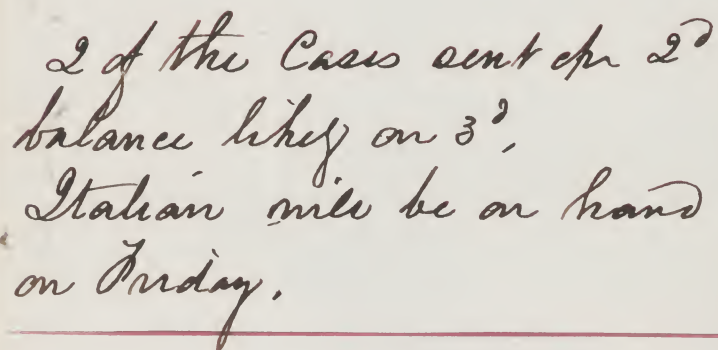 2 of the Cases sent ch 2d
balance likely on 3d,
Italian will be on hand
on Friday.